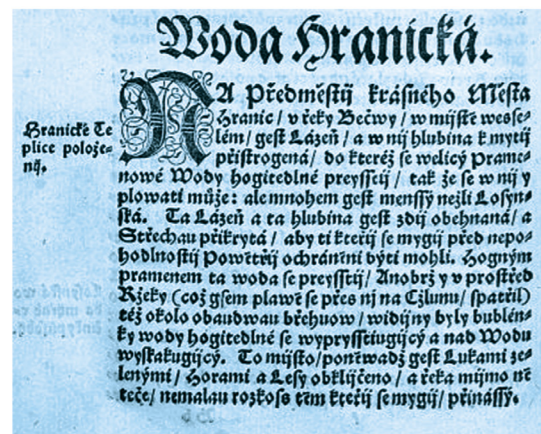 Woda Hranická.
Hranické Te
plice polože-
nij.
NA Předměstij krásného Města
Hranic / v řeky Bečwy / w mijstě wesse-
lém / gest Lázeň / a w nij hlubina k mytij
přistrogená / do kteréž se welicý Prame-
nowé Wody hogitedlné preysstij / tak že se w nij y
plowati může: ale mnohem gest menssý nežli Losyn-
ská. Ta Lázeň a ta hlubina gest zdij obehnaná / a
Střechau přikrytá / aby ti kteříž se mygij před nepo-
hodlnostij Powětřij ochráněni býti mohli. Hogným
pramenem ta woda se preysstij / Anobrž y v prostřed
Ržeky (což gsem plawě se přes ni na Cžlunu / spatřil)
též okolo obaudwau břehuow / widijny byly bublén-
ky wody hogitedlné se wyprysstiugijcý a nad Wodu
wyskakugijcý. To mijsto / poněwadž gest Lukami ze-
lenými / Horami a Lesy obklijčeno / a řeka mijmo ně
teče / nemalau rozkoš těm kteříž se mygij / přinássý.